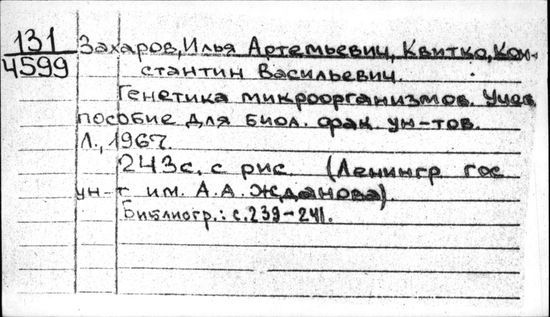 131
4599
Захаров, Илья Артемьевич, Квитко, Кон-
стантин Васильевич.
Генетика микроорганизмов. Учеб.
пособие для биол. фак. ун-тов.
Л., 1967.
243с. с рис. (Ленингр гос
ун-т им. А.А. Жданова).
Библиогр.: с.239-241.